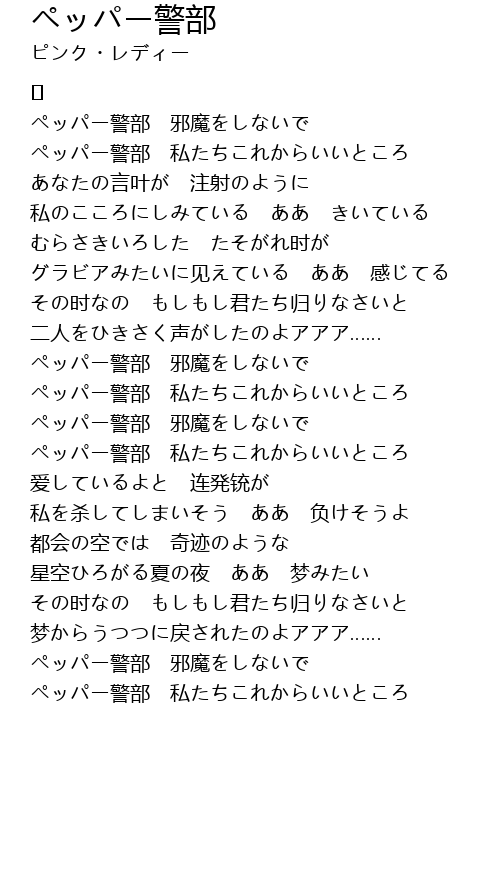 ペッパー警部
ピンク・レディー
ペッパー警部　邪魔をしないで
ペッパー警部　私たちこれからいいところ
あなたの言叶が　注射のように
私のこころにしみている　ああ　きいている
むらさきいろした　たそがれ时が
グラビアみたいに见えている　ああ　感じてる
その时なの　もしもし君たち归りなさいと
二人をひきさく声がしたのよアアア……
ペッパー警部　邪魔をしないで
ペッパー警部　私たちこれからいいところ
ペッパー警部　邪魔をしないで
ペッパー警部　私たちこれからいいところ
爱しているよと　连発铳が
私を杀してしまいそう　ああ　负けそうよ
都会の空では　奇迹のような
星空ひろがる夏の夜　ああ　梦みたい
その时なの　もしもし君たち归りなさいと
梦からうつつに戻されたのよアアア……
ペッパー警部　邪魔をしないで
ペッパー警部　私たちこれからいいところ